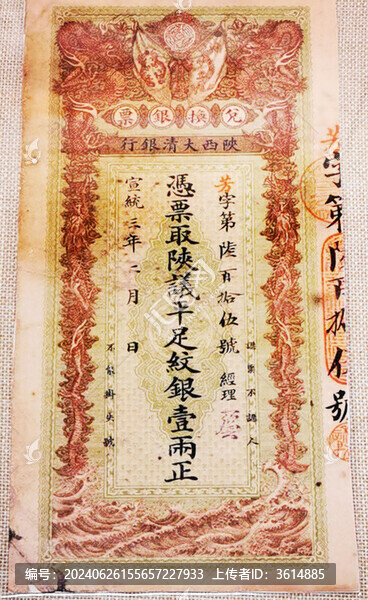 兌換銀票
陝西大清銀行
芳字第陸百拾伍號 經理
認票不認人
憑票取陝議平足紋銀壹兩正
宣統三年二月 日
不能掛失號
芳字第陸百拾伍號
编号:20240626155657227933 上传者ID:3614885